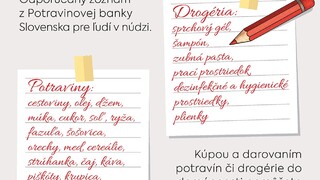 Odporúčaný zoznam
z Potravinovej banky
Slovenska pre ľudí v núdzi.
Drogéria:
sprchový gél,
šampón,
zubná pasta,
prací prostriedok,
dezinfekčné a hygienické
prostriedky,
plienky
Potraviny:
cestoviny, olej, džem,
múka, cukor, soľ, ryža,
fazuľa, šošovica,
orechy, med, cereálie,
strúhanka, čaj, káva,
piškóty, krupica,
Kúpou a darovaním
potravín či drogérie do